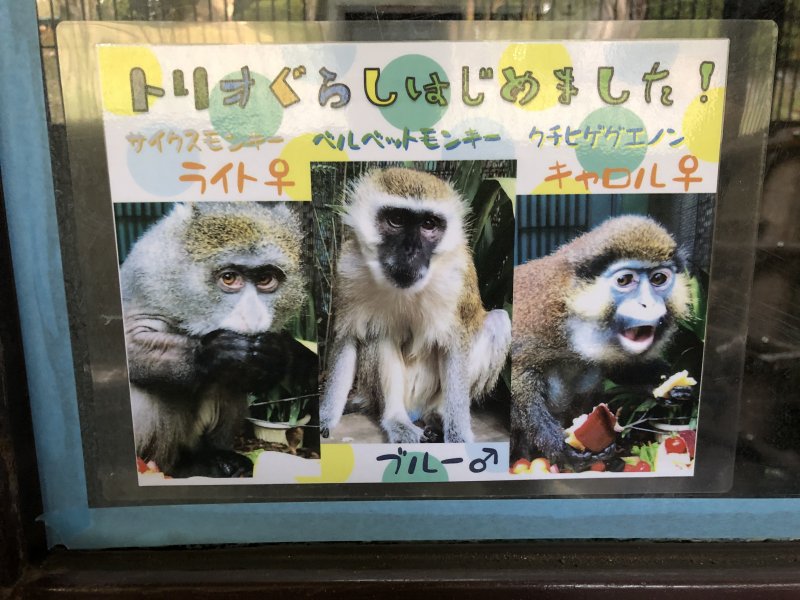 トリオぐらしはじめました!
サイクスモンキー ベルベットモンキー クチヒゲグエノン
ライト♀ キャロル♀
ブルー♂